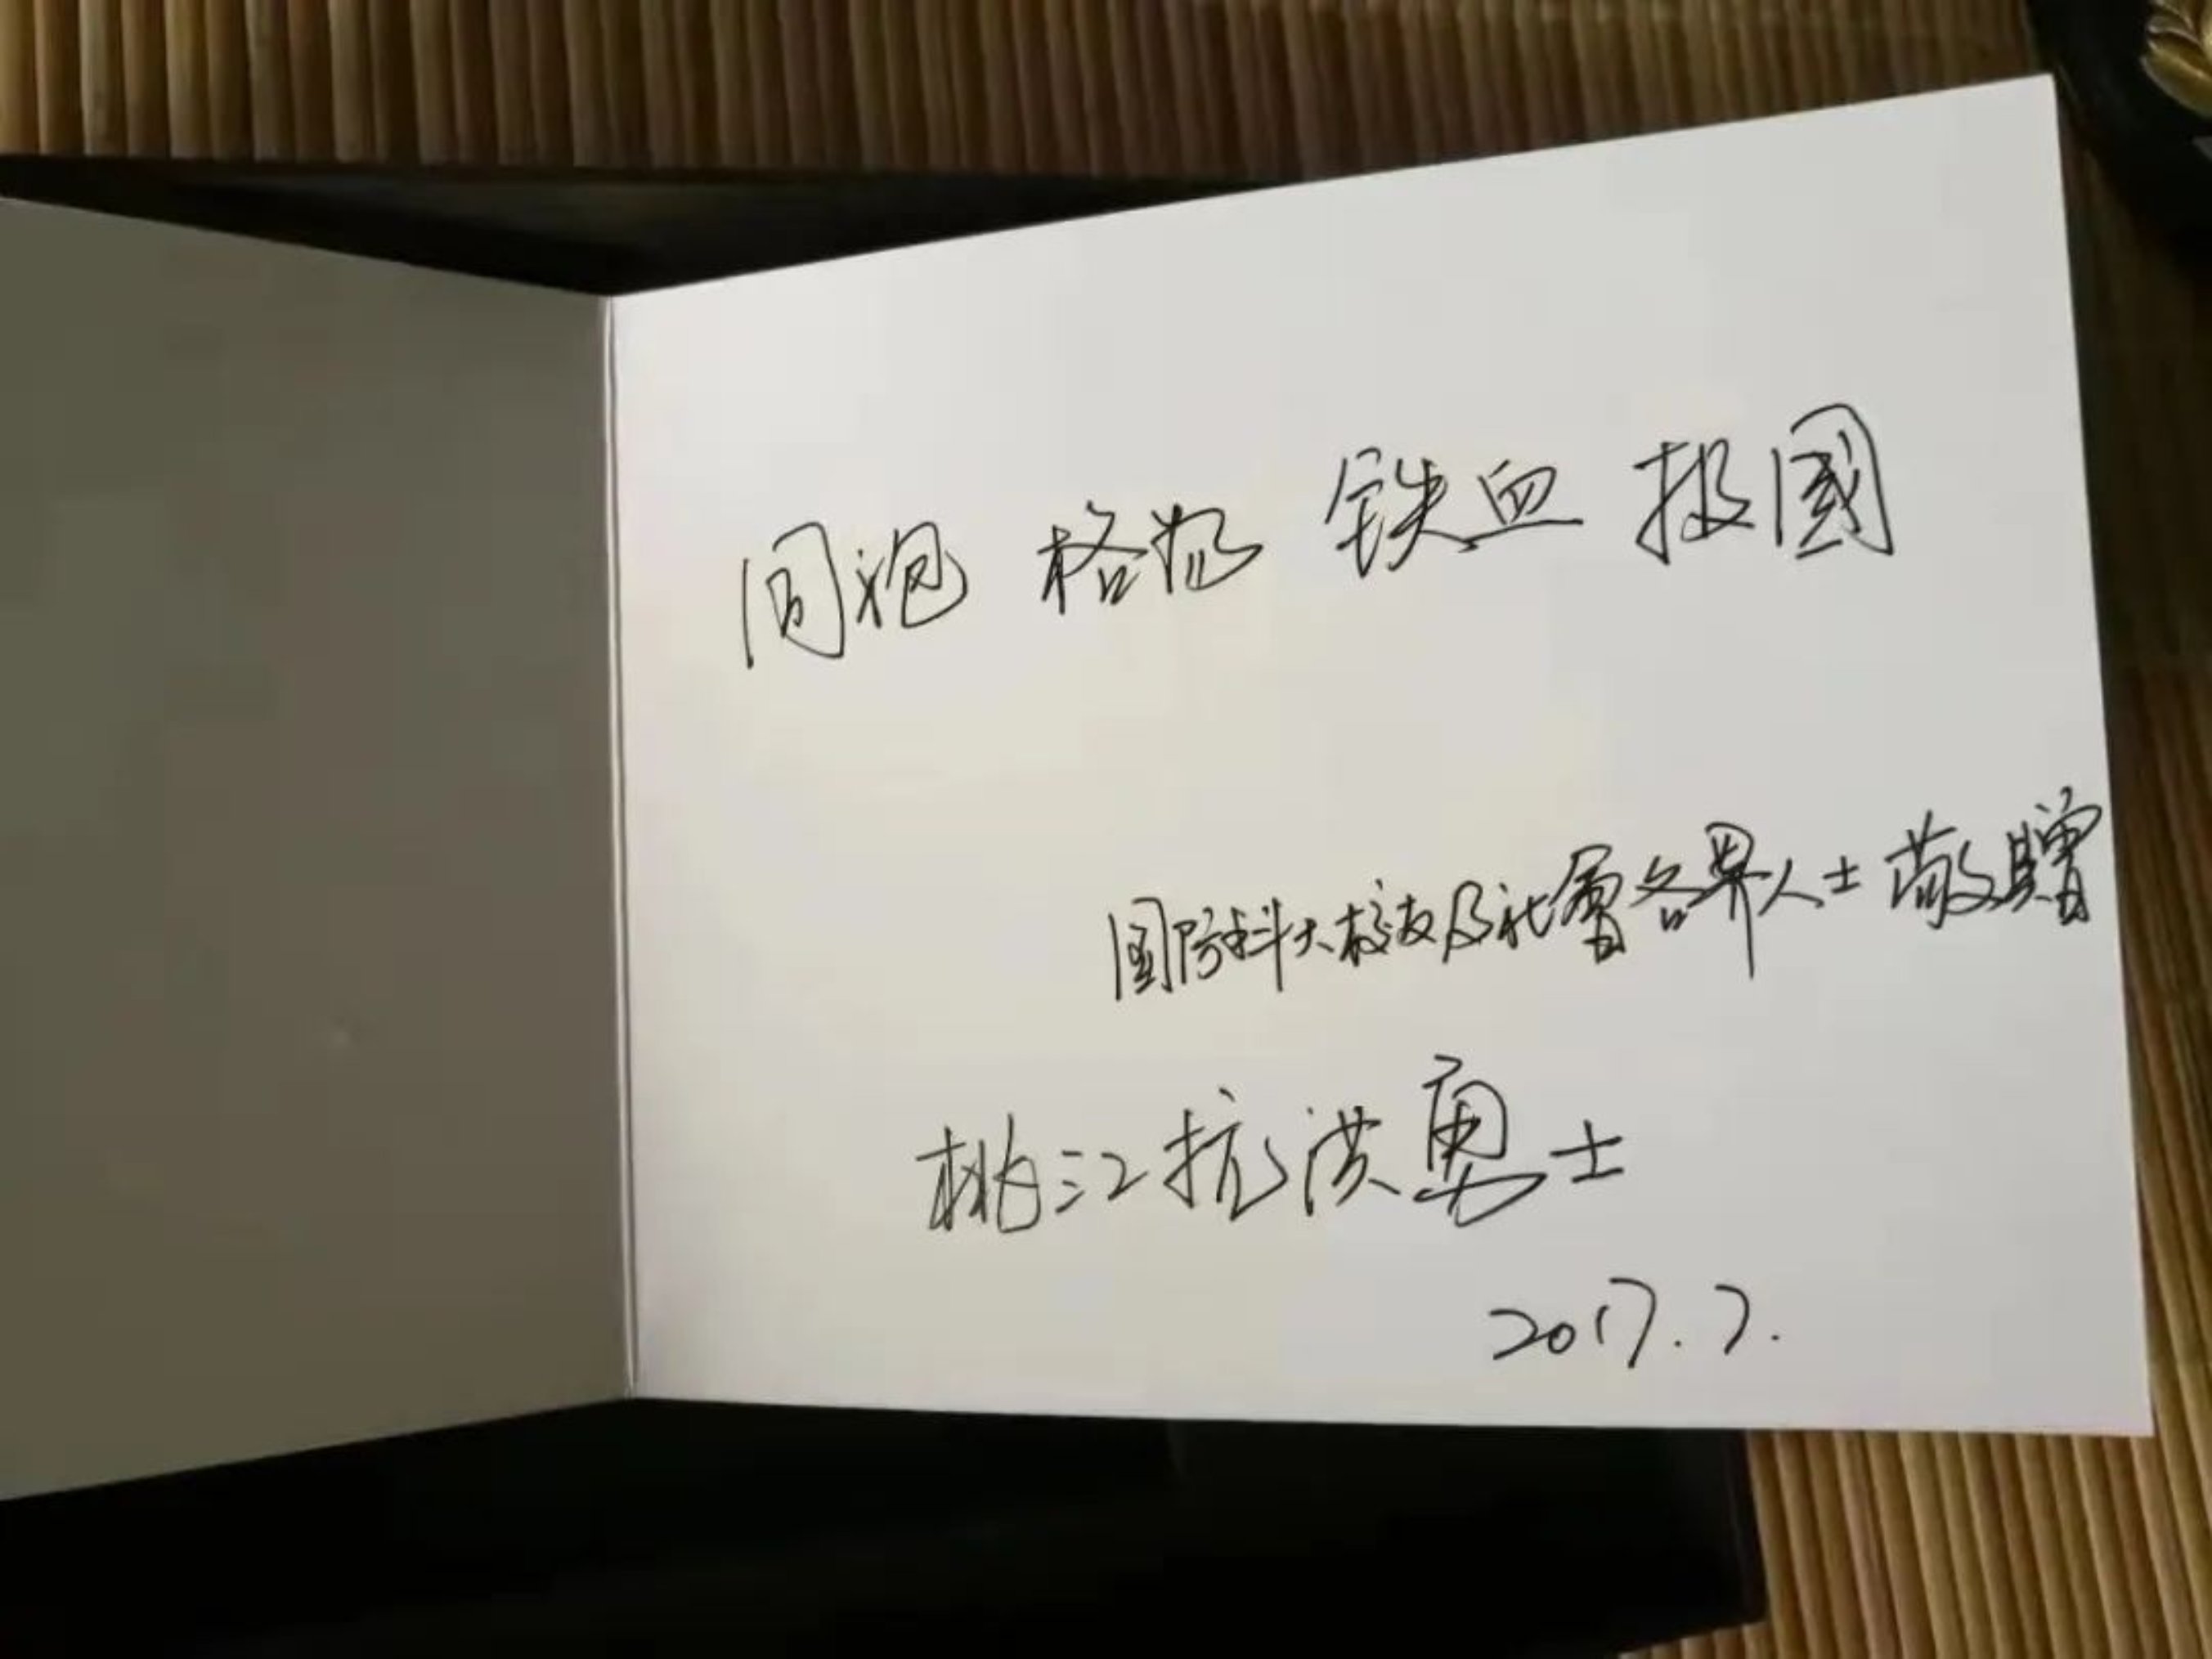 同袍 格物 铁血 报國
国防科大校友及社會各界人士敬贈
桃江抗洪勇士
2017.7.